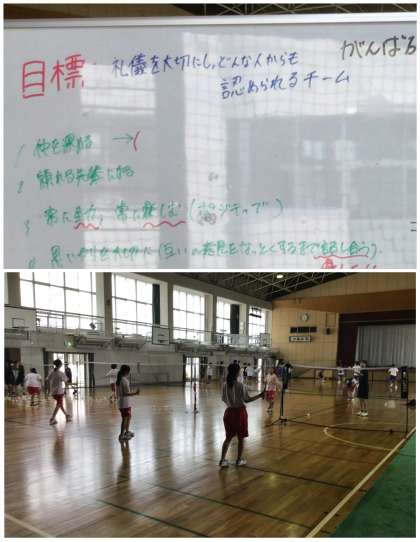 目標
礼儀を大切にし、どんな人からも
認められるチーム
がんばる
1
2 頼れる先輩になる
3 常に全力、常に楽しむ(ポジティブ)
4 思いやりを大切に(互いの意見をなっとくするまで話し合う)